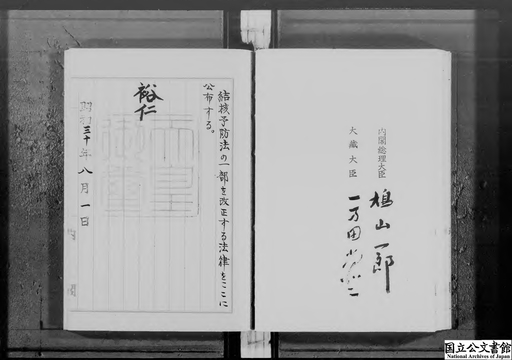 結核予防法の一部を改正する法律をここに
公布する。
裕仁
天皇
御璽
昭和三十年八月一日
内閣総理大臣
鳩山一郎
大蔵大臣
一万田尚登
国立公文書館
National Archives of Japan